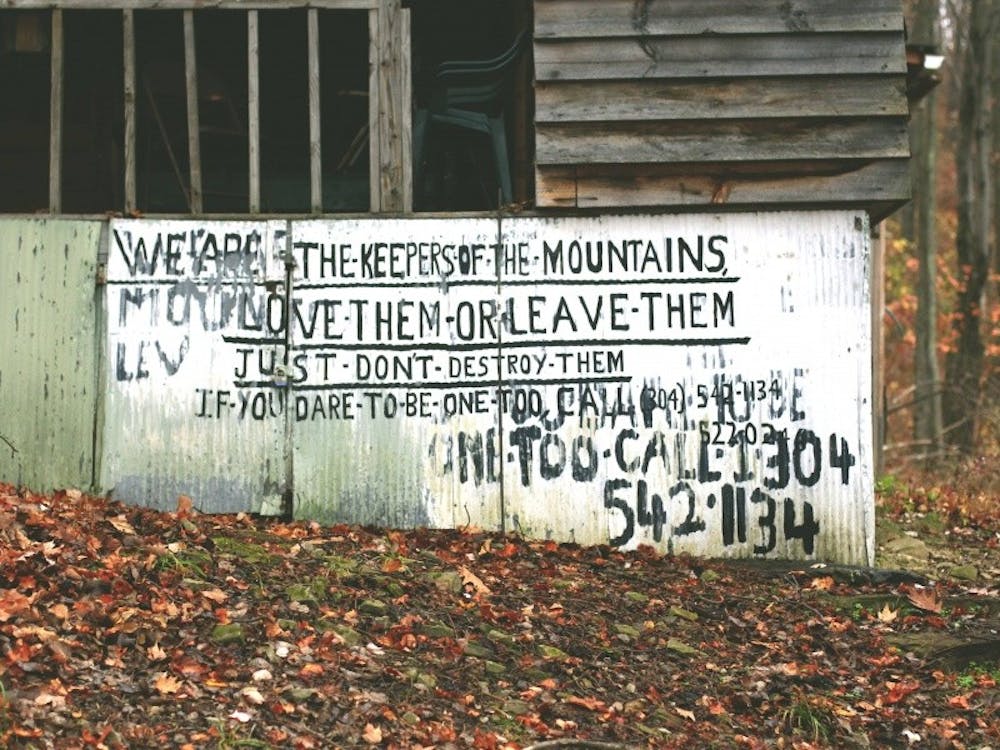 WE ARE THE-KEEPERS-OF-THE-MOUNTAINS,
LOVE-THEM-OR-LEAVE-THEM
JUST-DON'T-DESTROY-THEM
IF-YOU DARE-TO-BE-ONE-TOO CALL (304) 542-1134
ONE-TOO-CALL-1304
542-1134